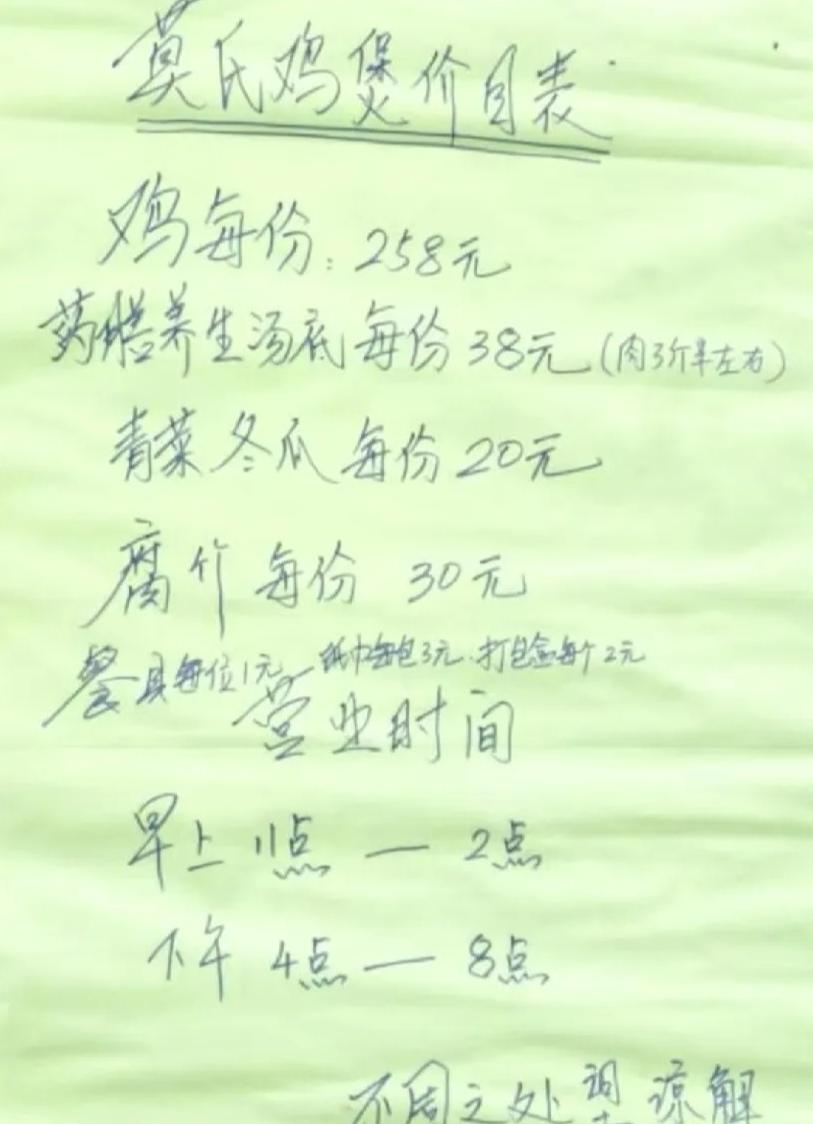 莫氏鸡煲价目表
鸡每份:258元
药膳养生汤底每份38元(肉3斤半左右)
青菜冬瓜每份20元
腐竹每份 30元
餐具每位1元 纸巾每包3元.打包盒每个2元
营业时间
早上11点—2点
下午4点—8点
不周之处 望谅解